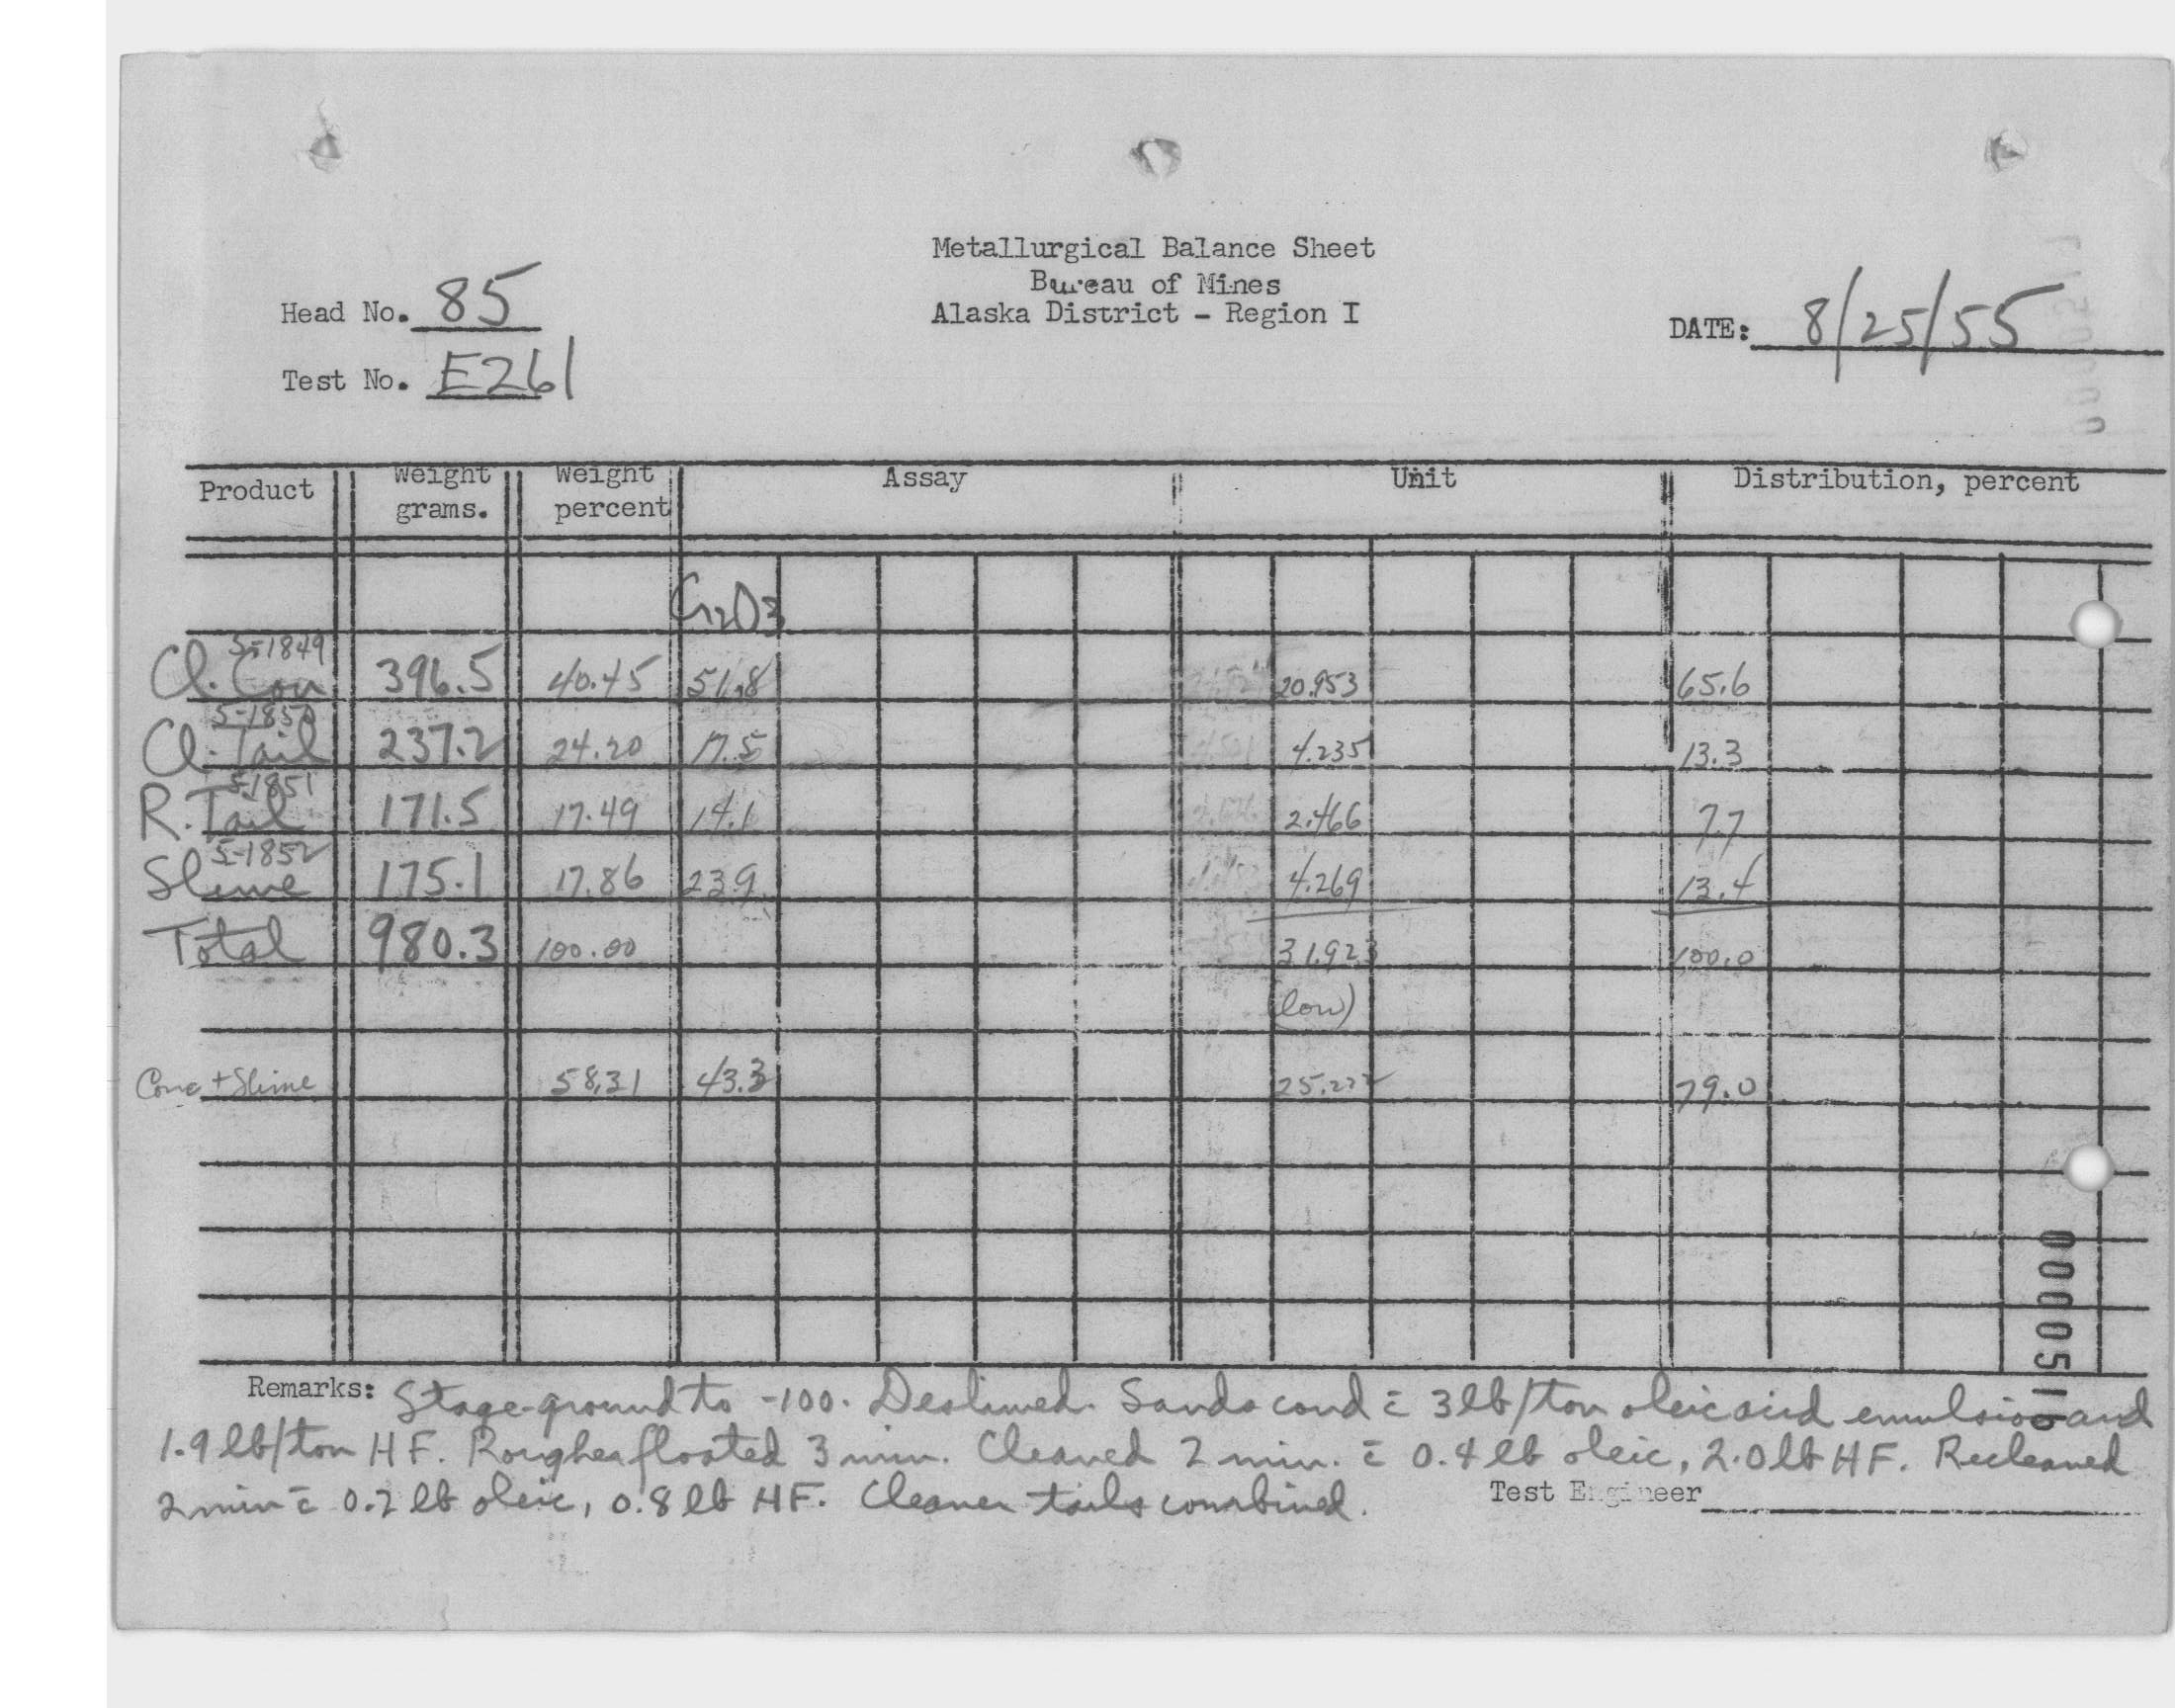 Metallurgical Balance Sheet
Bureau of Mines
Alaska District - Region I
Head No. 85
Test No. E261
DATE: 8/25/55
Product Weight grams. Weight percent Assay Unit Distribution, percent
Cr2O3
5-1849
Cl. Con 396.5 40.45 51.8 20.953 65.6
5-1850
Cl. Tail 237.2 24.20 17.5 4.235 13.3
5-1851
R. Tail 171.5 17.49 14.1 2.466 7.7
5-1852
Slime 175.1 17.86 23.9 4.269 13.4
Total 980.3 100.00 31.923 100.0
(low)
Conc + Slime 58.31 43.3 25.222 79.0
000051
Remarks: Stage-ground to -100. Deslimed. Sands cond c̄ 3 lb/ton oleic acid emulsion and
1.9 lb/ton HF. Rougher floated 3 min. Cleaned 2 min. c̄ 0.4 lb oleic, 2.0 lb HF. Recleaned
2 min c̄ 0.2 lb oleic, 0.8 lb HF. Cleaner tails combined.
Test Engineer